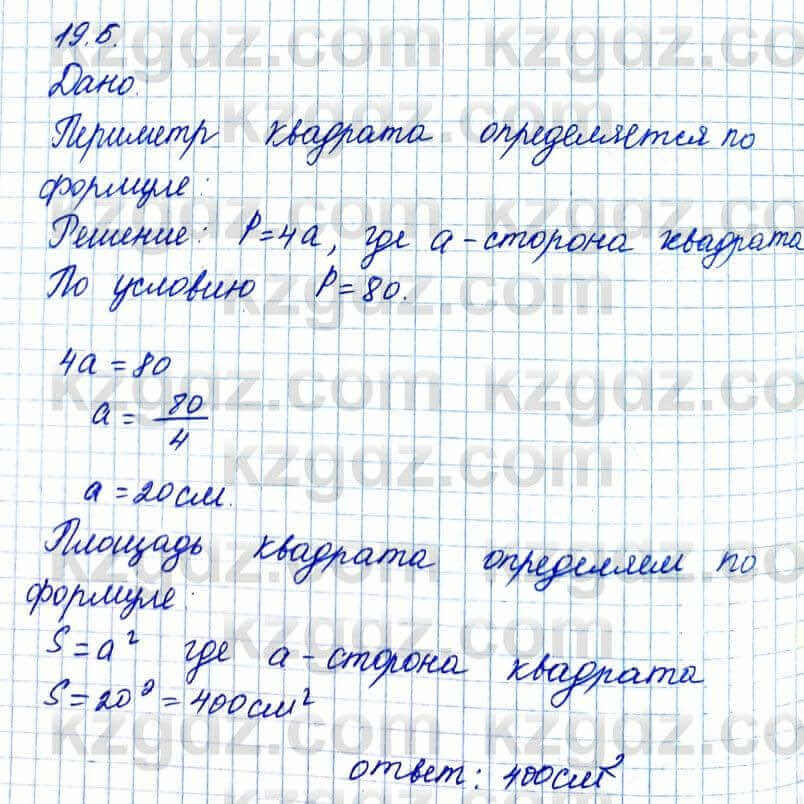 19.5.
Дано.
Периметр квадрата определяется по
формуле:
Решение: P=4a, где a-сторона квадрата
По условию P=80.
4a=80
a= 80/4
a=20см.
Площадь квадрата определяем по
формуле:
S=a² где a-сторона квадрата
S=20²=400см²
ответ: 400см²
kzgdz.com